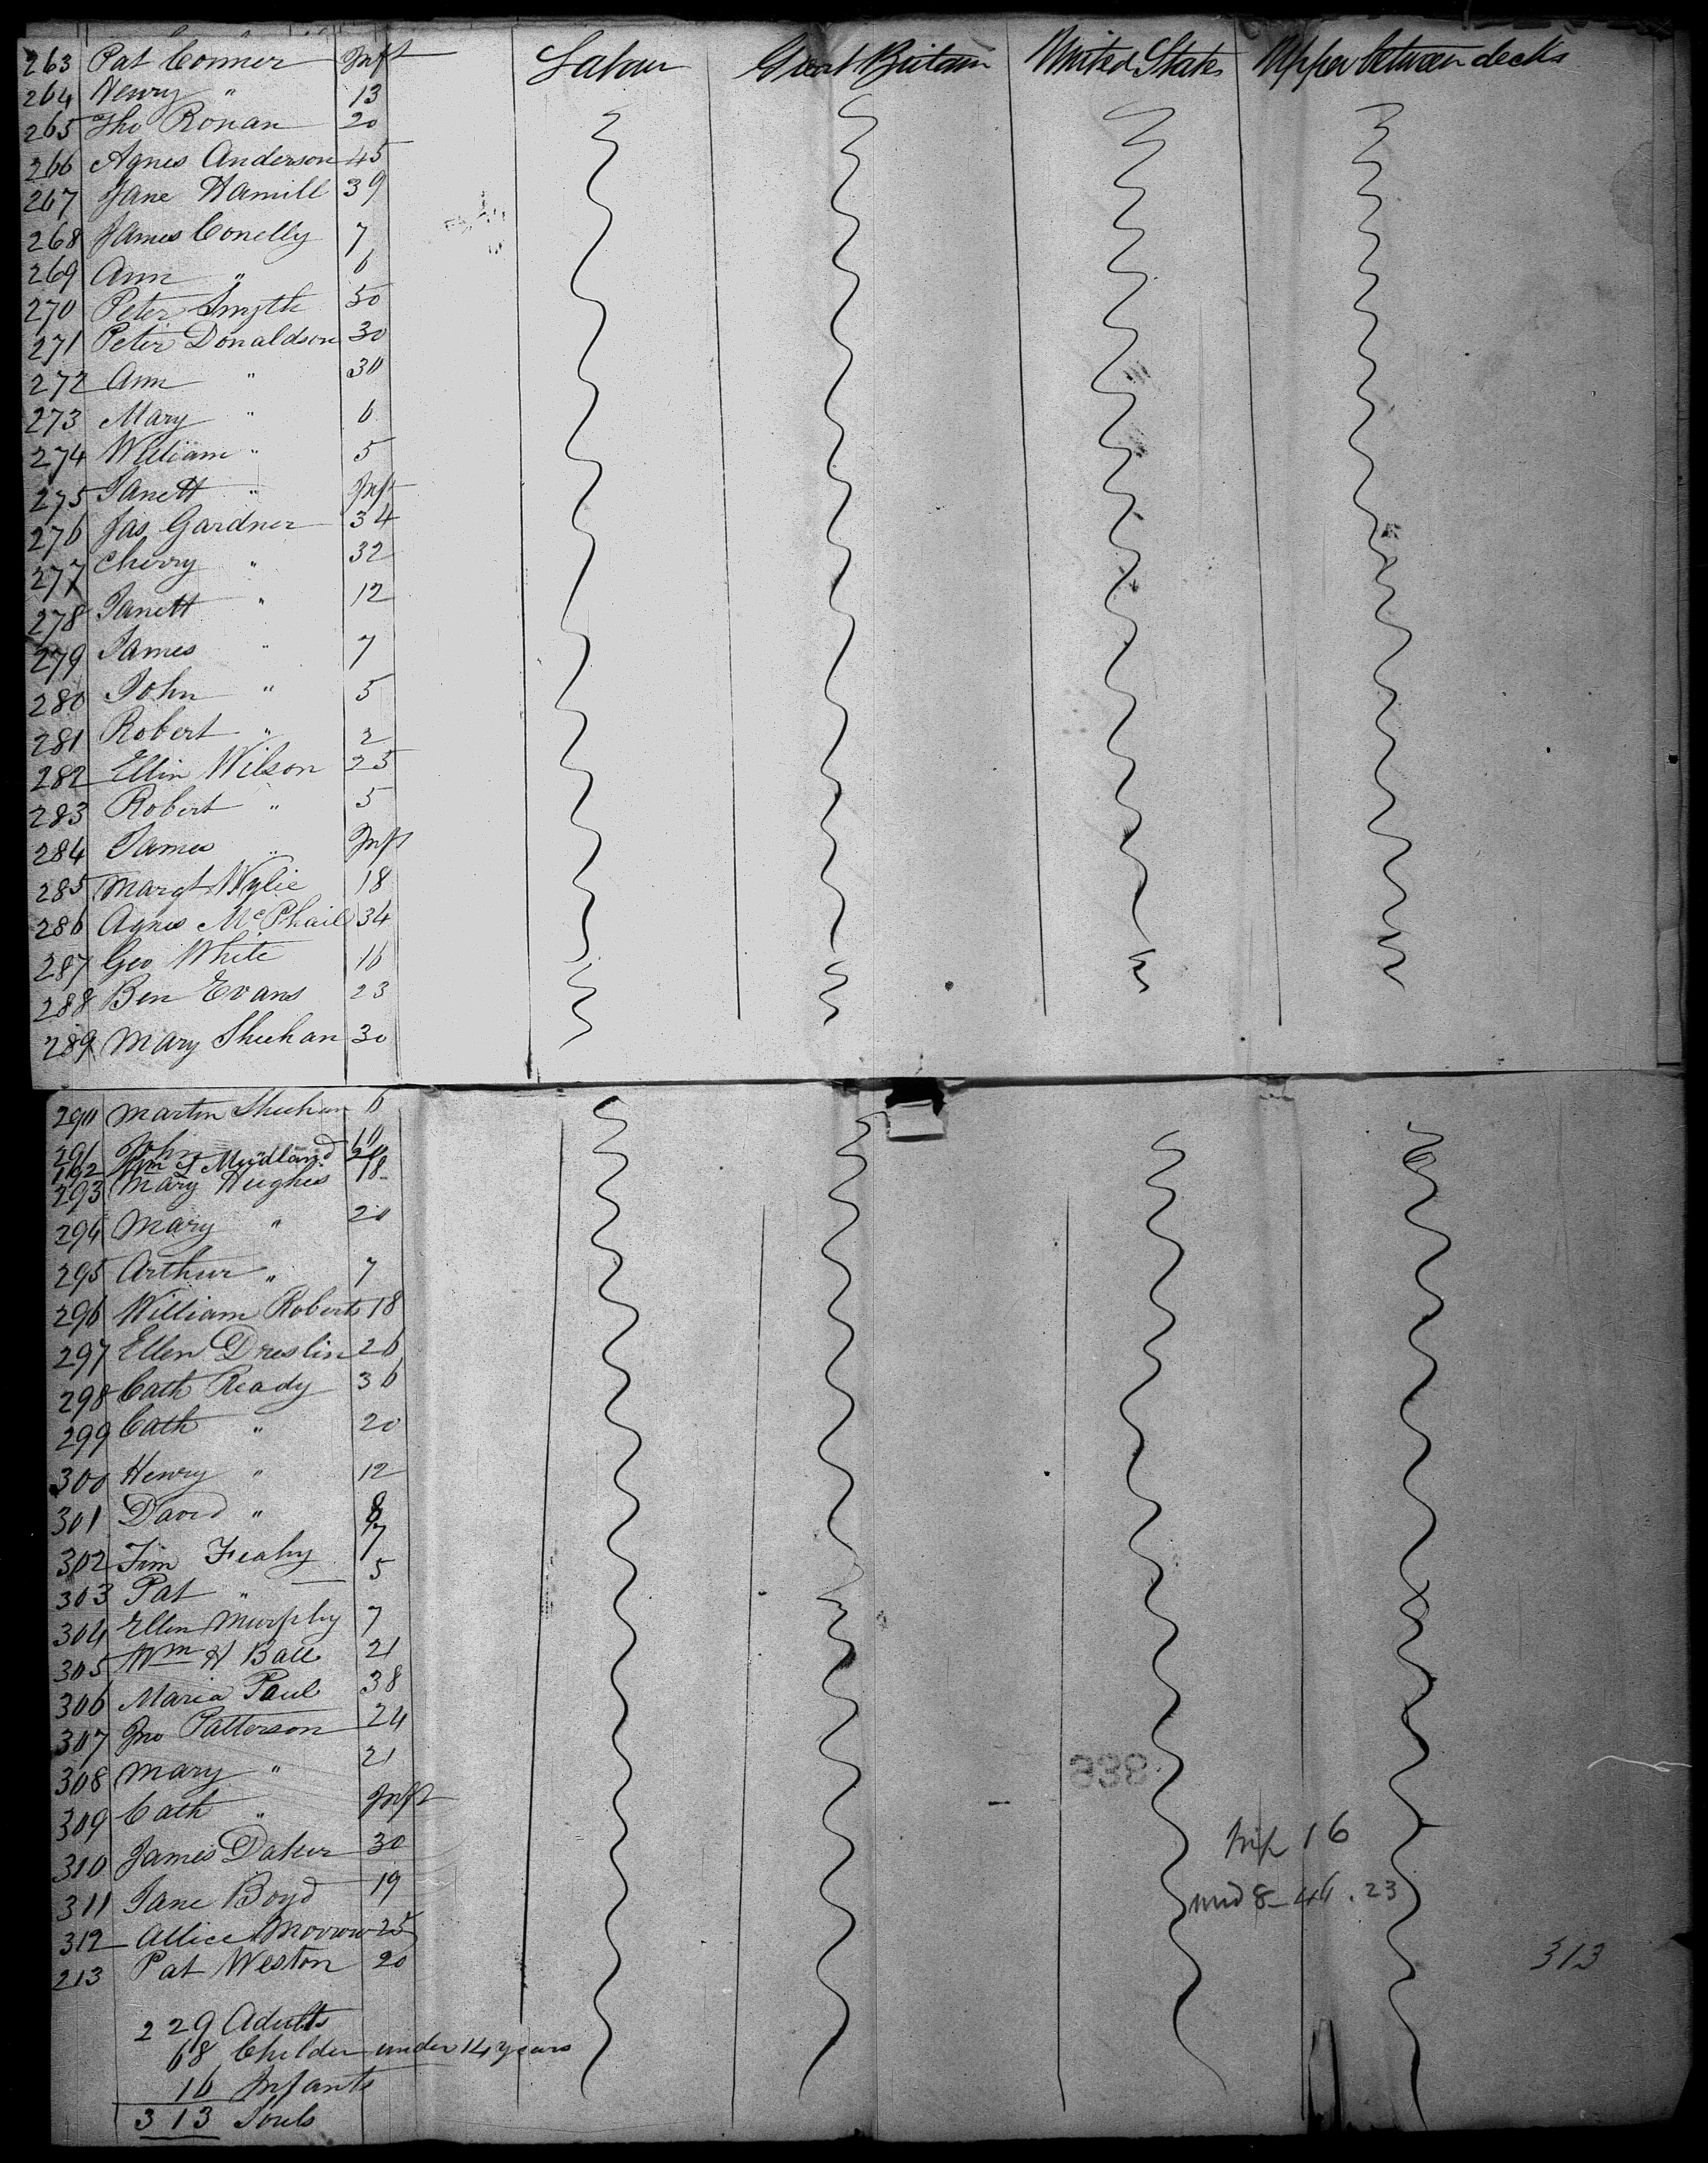 263 Pat Conner Inft Labour Great Britain United States Upper between decks
264 Henry " 13
265 Tho Ronan 20
266 Agnes Anderson 45
267 Jane Hamill 39
268 James Conelly 7
269 Ann " 6
270 Peter Smyth 50
271 Peter Donaldson 30
272 Ann " 30
273 Mary " 6
274 William " 5
275 Janett " Inft
276 Jas Gardner 34
277 Cherry " 32
278 Janett " 12
279 James " 7
280 John " 5
281 Robert " 2
282 Ellin Wilson 25
283 Robert " 5
284 James " Inft
285 Margt Wylie 18
286 Agnes McPhail 34
287 Geo White 16
288 Ben Evans 23
289 Mary Sheehan 30
290 Martin Sheehan 6
291 John
192 Wm S Mudland
293 Mary Hughes 18
294 Mary " 20
295 Arthur " 7
296 William Roberts 18
297 Ellen Dreslin 26
298 Cath Ready 36
299 Cath " 20
300 Henry " 12
301 David " 8
302 Tim Feahy 7
303 Pat " 5
304 Ellen Murphy 7
305 Wm H Ball 21
306 Maria Paul 38
307 Jno Patterson 24
308 Mary " 21
309 Cath " Inft
310 James Daker 30
311 Jane Boyd 19
312 Allice Morrow 25
213 Pat Weston 20
338
16
8-44.23
313
229 Adults
68 Childer under 14 years
16 Infants
313 Souls